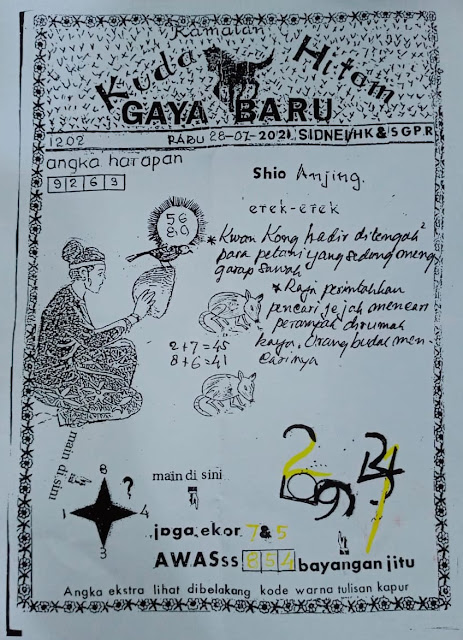 Ramalan
Kuda Hitam
GAYA BARU
1202 RABU 28-07-2021 SIDNEI/HK & SGP.R
angka harapan
9263
Shio Anjing.
erek-erek
56
80
* Kwan Kong hadir ditengah²
para petani yang sedang meng
garap sawah
* Raja perintahkan
pencari jejak mencari
perampok dirumah
kaya. Orang budak men-
carinya
2+7=45
8+6=41
main di sini
8
?
1 4
3
main di sini
jaga ekor 7 & 5
AWASss 854 bayangan jitu
Angka ekstra lihat dibelakang kode warna tulisan kapur